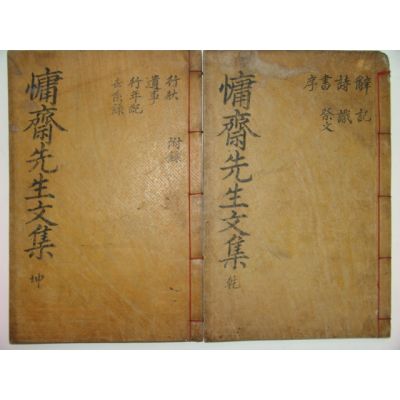 辭 記
詩
書 祭文
序
慵齋先生文集 乾
行狀 附錄
遺事
行年紀
世系錄
慵齋先生文集 坤